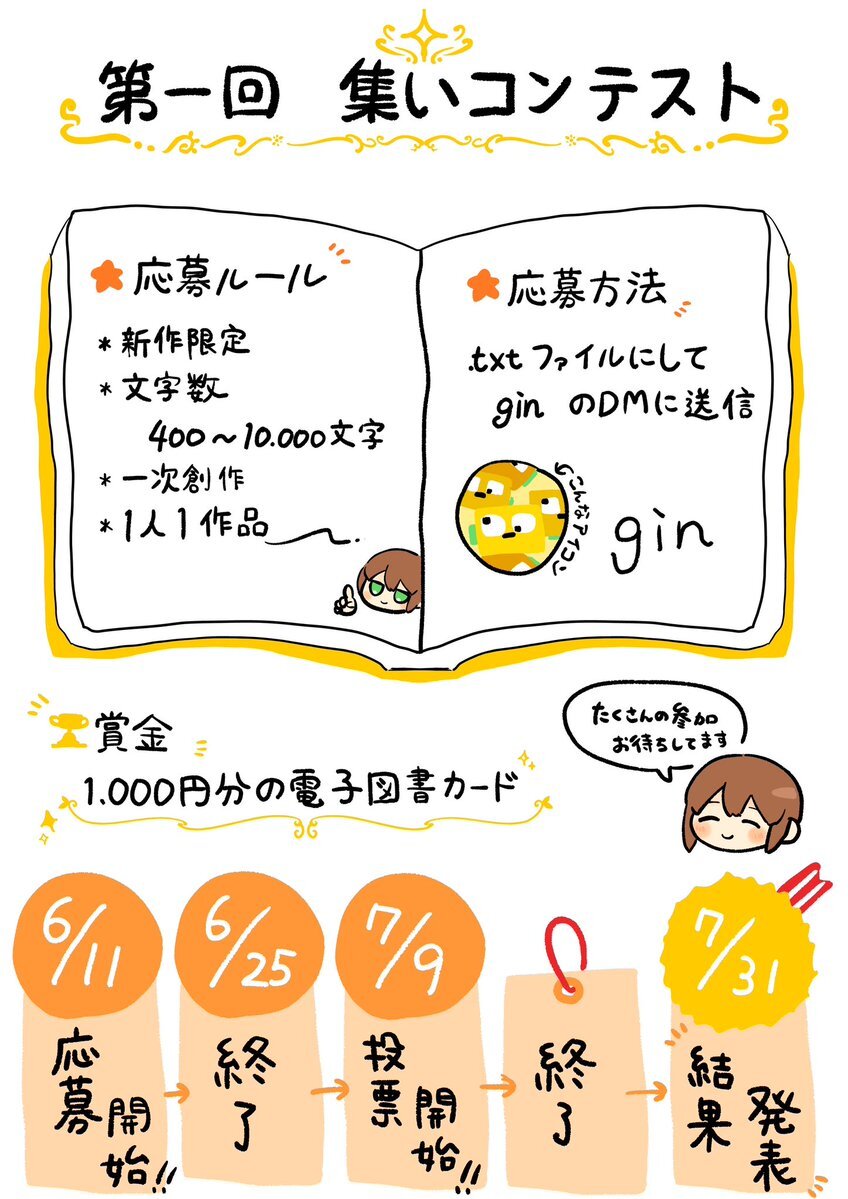 第一回 集いコンテスト
応募ルール
*新作限定
*文字数
400～10.000文字
*一次創作
*1人1作品
応募方法
.txtファイルにして
gin のDMに送信
こんなアイコン
gin
賞金
1.000円分の電子図書カード
たくさんの参加
お待ちしてます
6/11
応募開始!!
6/25
終了
7/9
投票開始!!
終了
7/31
結果発表